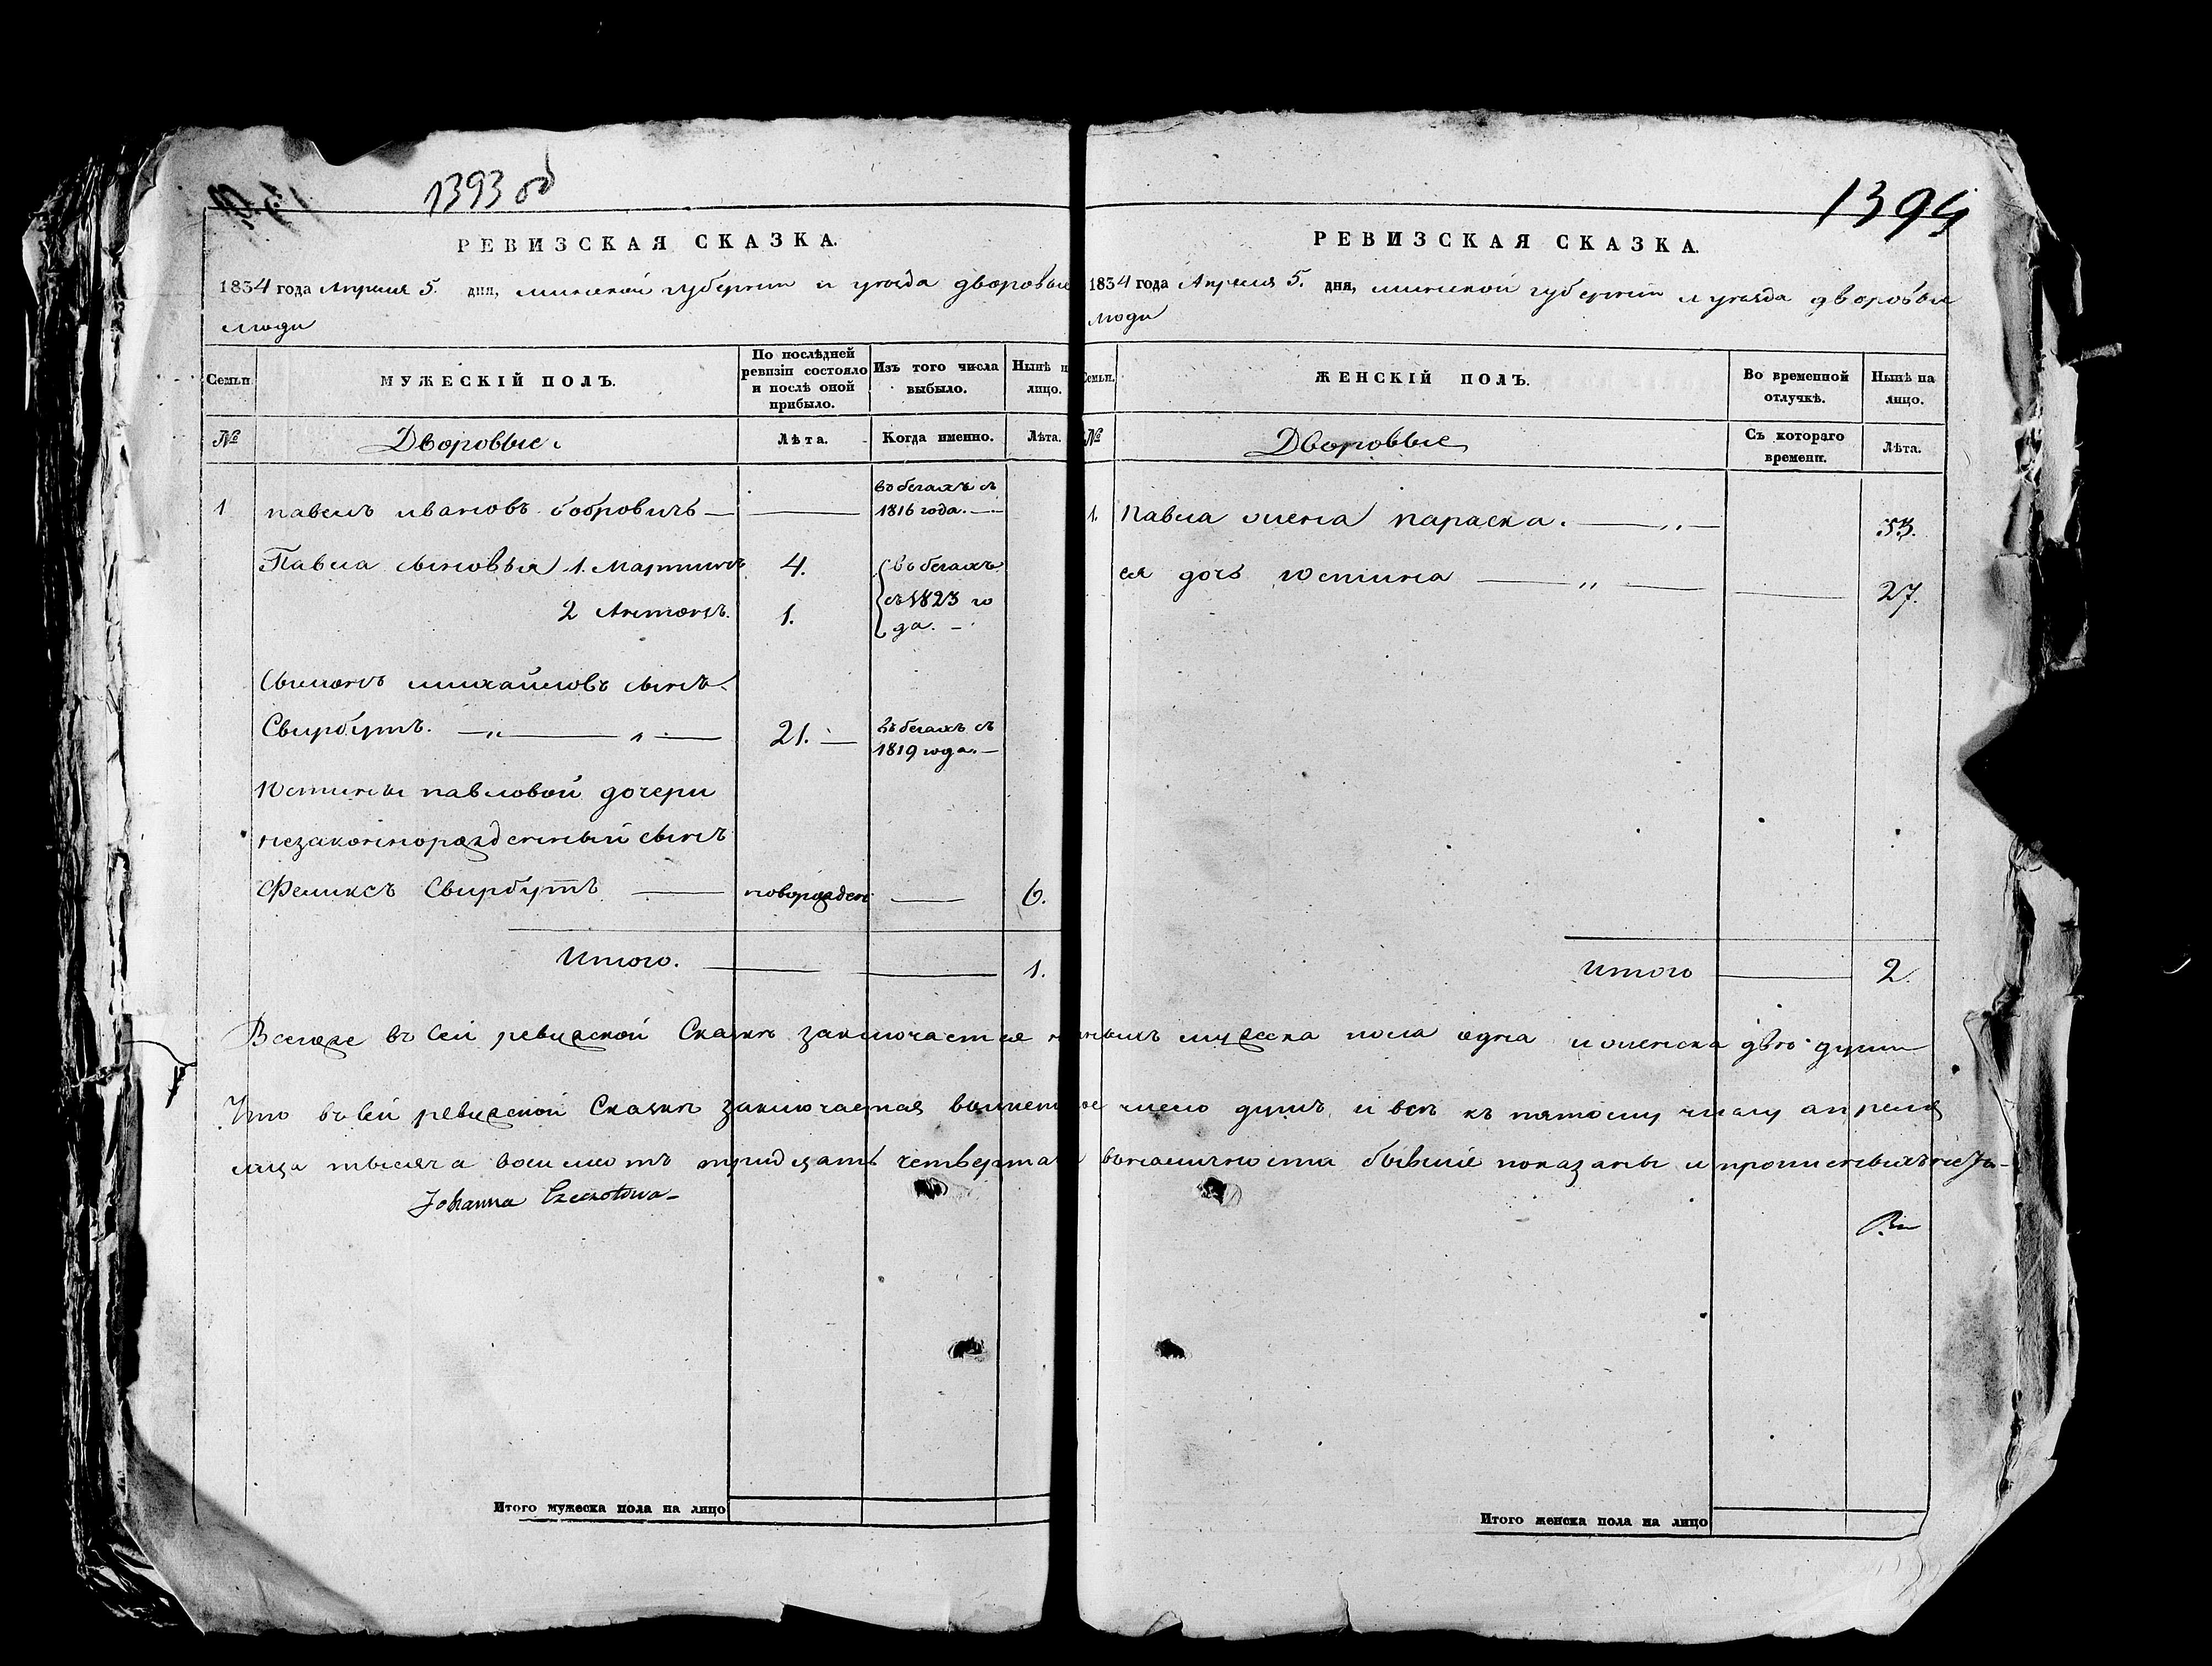 1393 об
РЕВИЗСКАЯ СКАЗКА.
1834 года Апреля 5. дня, минской губернии и уезда дворовые
люди
Семьи.
МУЖЕСКІЙ ПОЛЪ.
По послѣдней
ревизіи состояло
и послѣ оной
прибыло.
Изъ того числа
выбыло.
Нынѣ н
лицо.
№
Дворовые
Лѣта.
Когда именно.
Лѣта.
1 павелъ ивановъ бобровичъ — — въ бегахъ съ
1816 года. —
Павла сыновья 1. Мартинъ 4. въ бегахъ
2 Антонъ. 1. съ 1823 го
да. —
Сымонъ михайловъ сынъ
Свирбутъ. — 21. — въ бегахъ съ
1819 года. —
Юстины павловой дочери
незаконнорожденный сынъ
Феликсъ Свирбутъ — новорожден — 6.
Итого. — — 1.
1394
РЕВИЗСКАЯ СКАЗКА.
1834 года Апреля 5. дня, минской губернии и уезда дворовые
люди
Семьи.
ЖЕНСКІЙ ПОЛЪ.
Во временной
отлучкѣ.
Нынѣ на
лицо.
№
Дворовые
Съ котораго
времени.
Лѣта.
1. Павла жена параска. — „ — 53.
ея дочь юстина — „ — — 27.
Итого — 2.
Всегоже въ сей ревизской Сказкѣ заключается наличныхъ мужеска пола одна и женска двѣ души
Что въ сей ревизской Сказкѣ заключается число душъ и всѣ къ пятому числу апреля
тысяча восимсотъ тридцать четверта бывшіе показаны и
Johanna
Итого мужеска пола на лицо
Итого женска пола на лицо